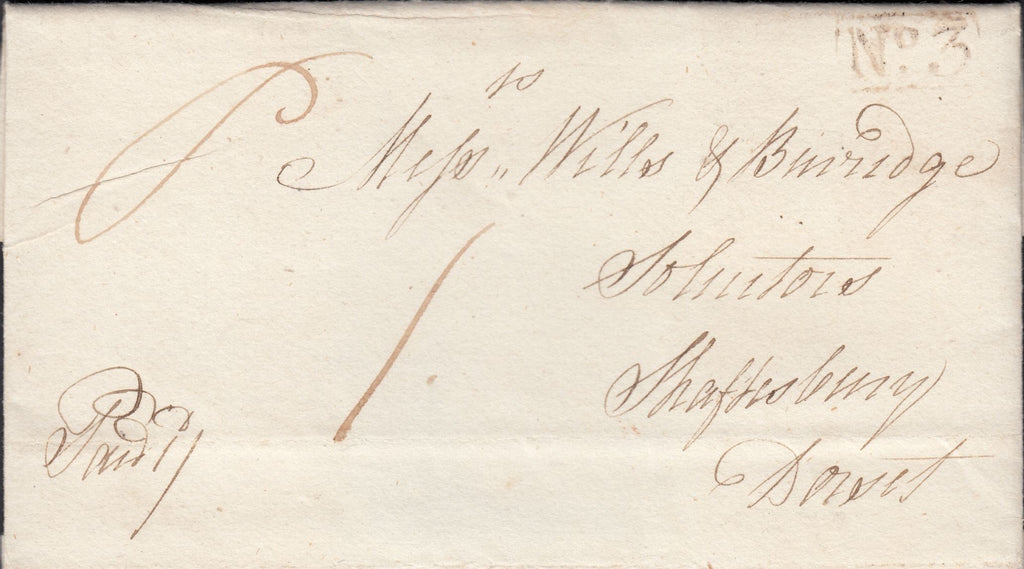 No. 3
P
Messrs Wills & Burridge
1
Solicitors
Shaftesbury
Paid 1/
Dorset